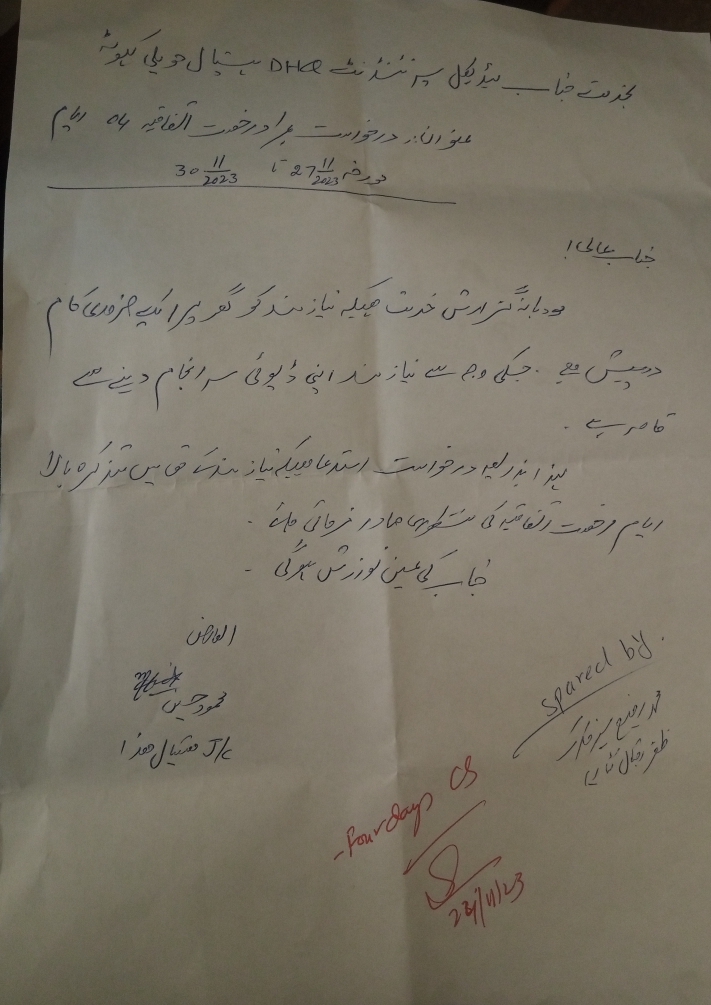 بخدمت جناب میڈیکل سپرنٹنڈنٹ DHQ ہسپتال حویلی کہوٹہ
عنوان: درخواست بمراد رخصت اتفاقیہ 04 ایام
مورخہ 27 11/2023 تا 30 11/2023
جناب عالی!
مودبانہ گزارش خدمت ھیکہ نیازمند کو گھر پر ایک ضروری کام
درپیش ہے ۔ جسکی وجہ سے نیازمند اپنی ڈیوٹی سرانجام دینے سے
قاصر ہے ۔
لہذا بذریعہ درخواست استدعا ھیکہ نیازمند کے حق میں متذکرہ بالا
ایام رخصت اتفاقیہ کی منظوری صادر فرمائی جائے ۔
جناب کی عین نوازش ہوگی ۔
العارض
محمود حسین
J/C ہسپتال ھذا
spared by.
محمد رفیع
ظفر اقبال
Four days